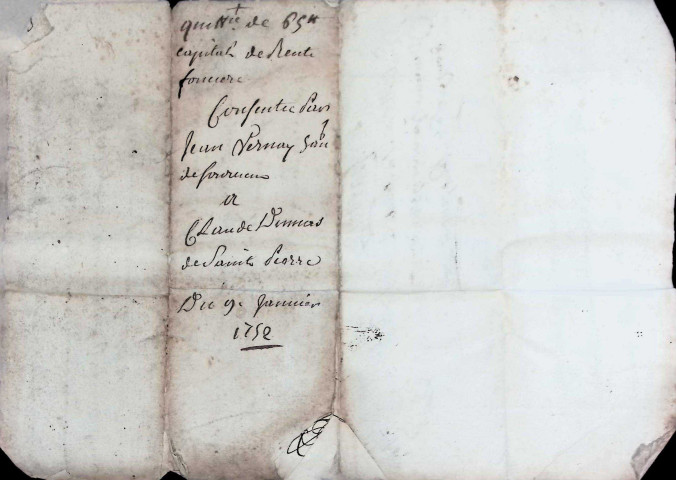 quittce de 65tt
capital de Rente
fonciere
Consentie Par
Jean Pernay
a
Claude Dumas
de Saint Pierre
Du 9e Janvier
1752